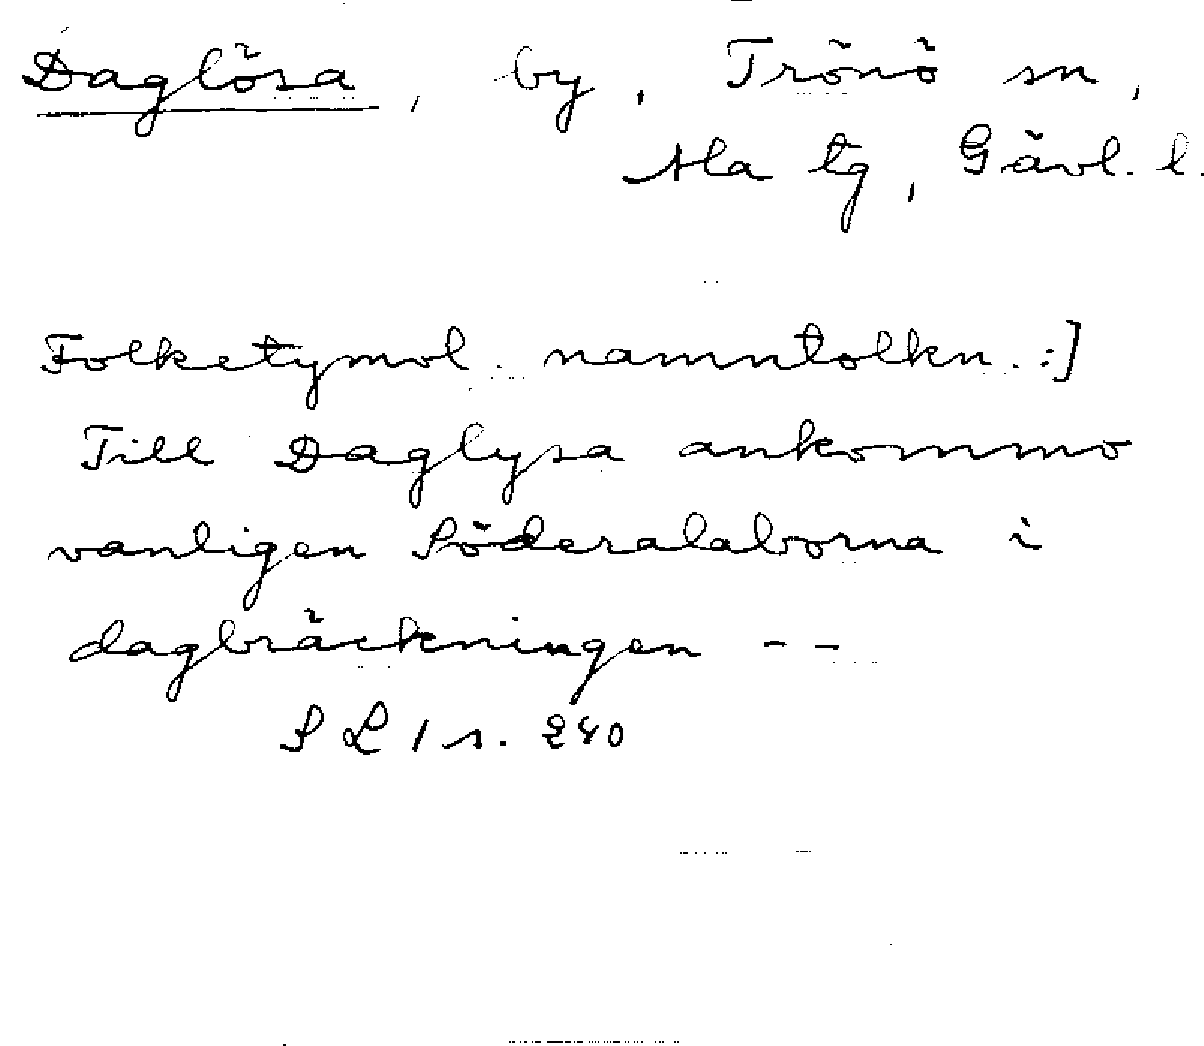 Daglösa, by, Trönö sn,
Ala tg, Gävl. l.
Folketymol. namntolkn.:]
Till Daglysa ankommo
vanligen Söderalaborna i
dagbräckningen - -
SL 1 s. 240